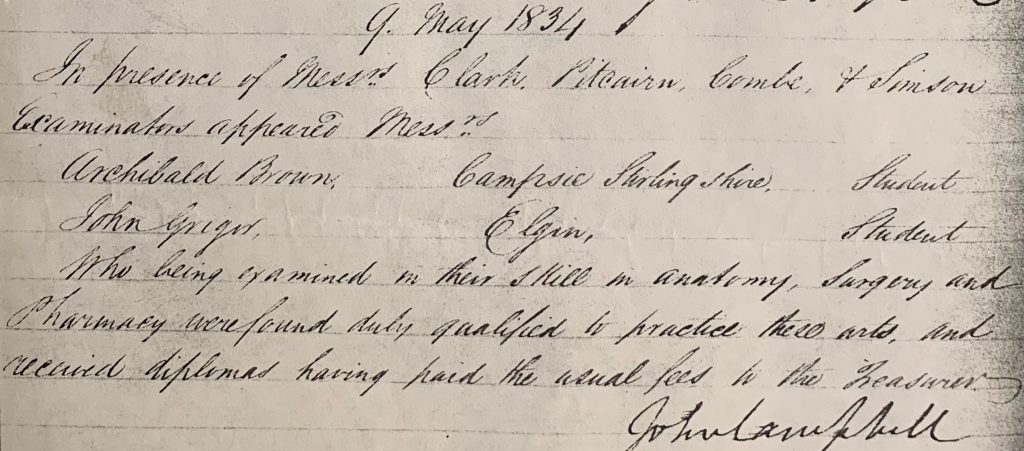 9. May 1834
In presence of Messrs Clark, Pitcairn, Combe, & Simson
Examinators appeared Messrs
Archibald Brown, Campsie Stirlingshire, Student
John Grigor, Elgin, Student
Who being examined in their skill in anatomy, Surgery and
Pharmacy were found duly qualified to practice these arts, and
received diplomas having paid the usual fees to the Treasurer
John Campbell